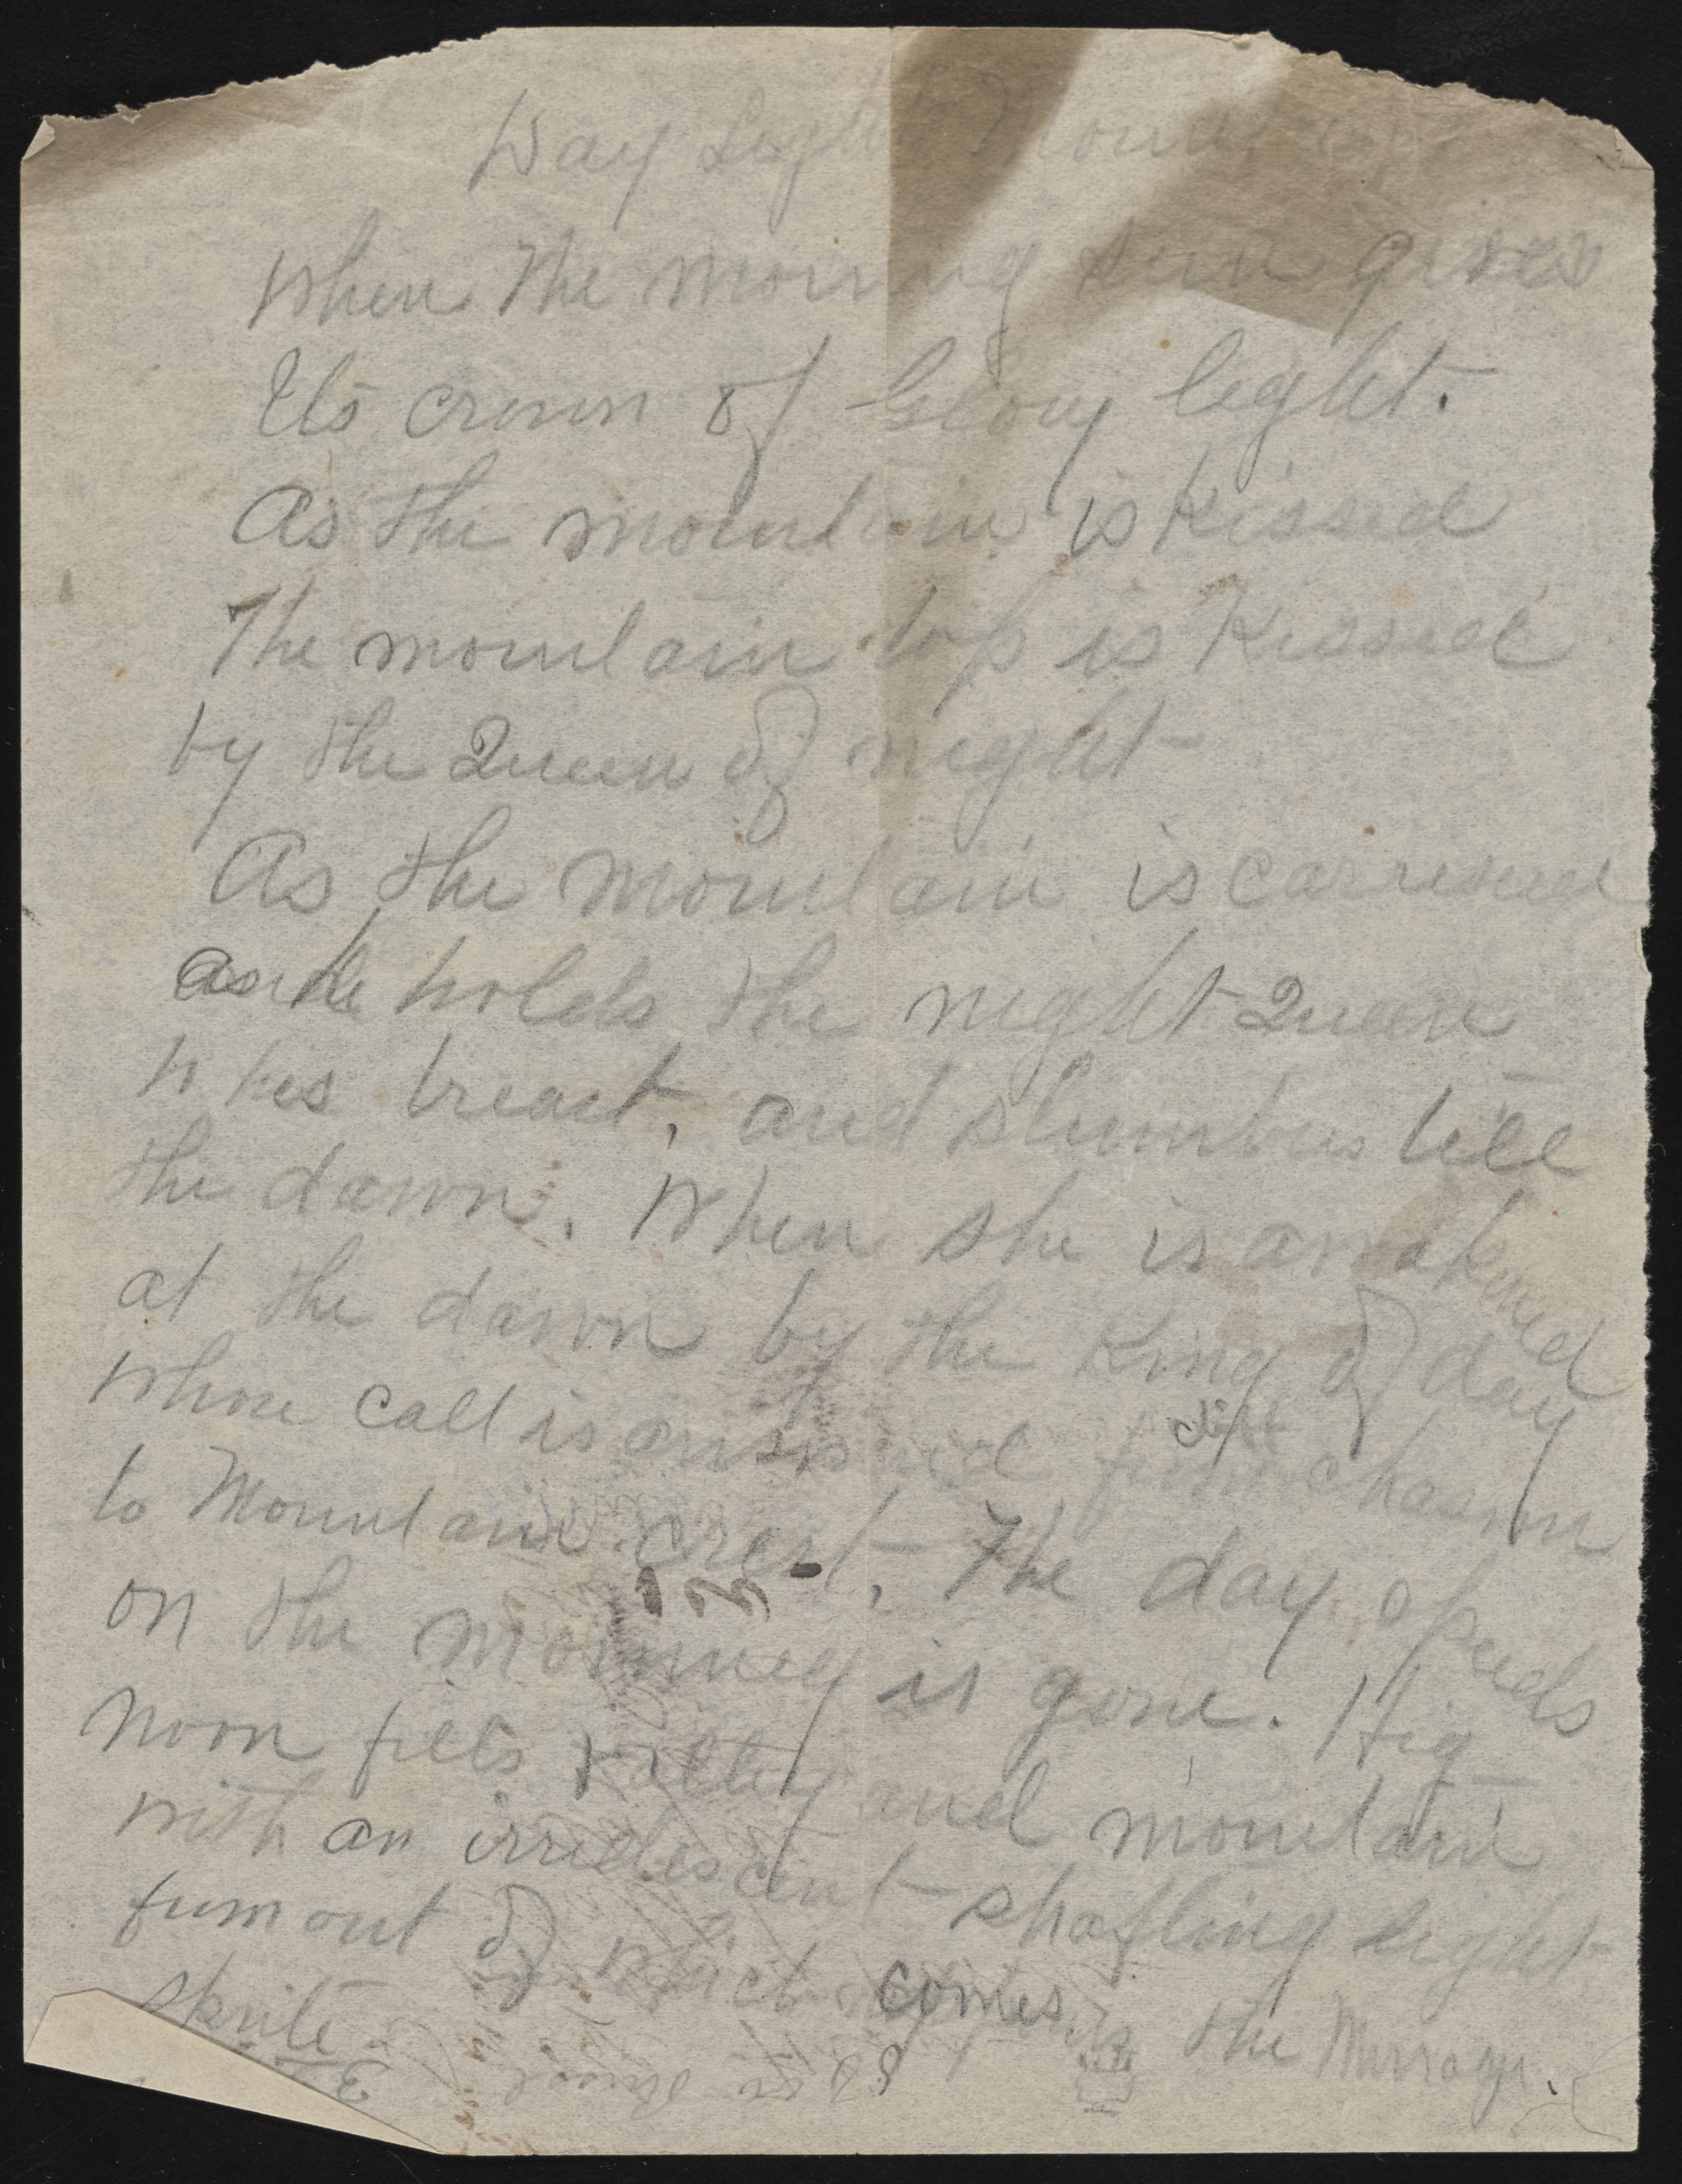 Day Light
When The morning sun gives
Its crown of Glory light.
As the mountain is Kissed
The mountain top is Kissed
by the Queen of night
As the mountain is carresed
as he holds the night Queen
to his breast, and slumbers till
the dawn. When she is awakened
at the dawn by the King of day
whose call is from cliff chasm
to Mountain crest. The day speeds
on the morning is gone. Hig
noon fills valley and mountain
with an irredescent shafting light
fum out of which comes the Mirrage
sprite